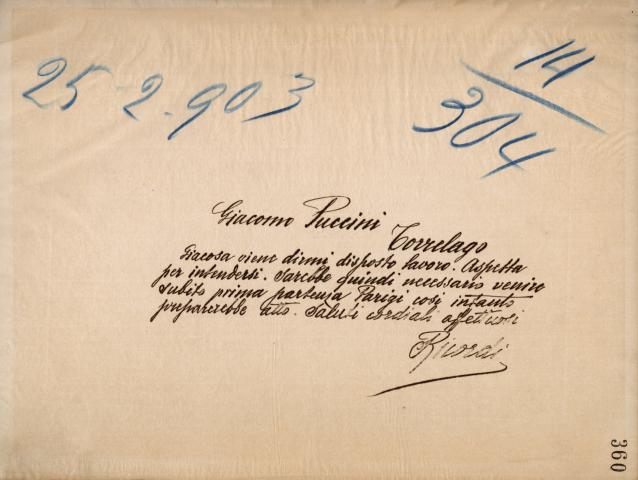 25-2-903
14
304
Giacomo Puccini
Torrelago
Giacosa viene dirmi disposto lavoro. Aspetta
per intendersi. Sarebbe quindi necessario venire
subito prima partenza Parigi così intanto
preparerebbe atto. Saluti cordiali affettuosi
Ricordi
360